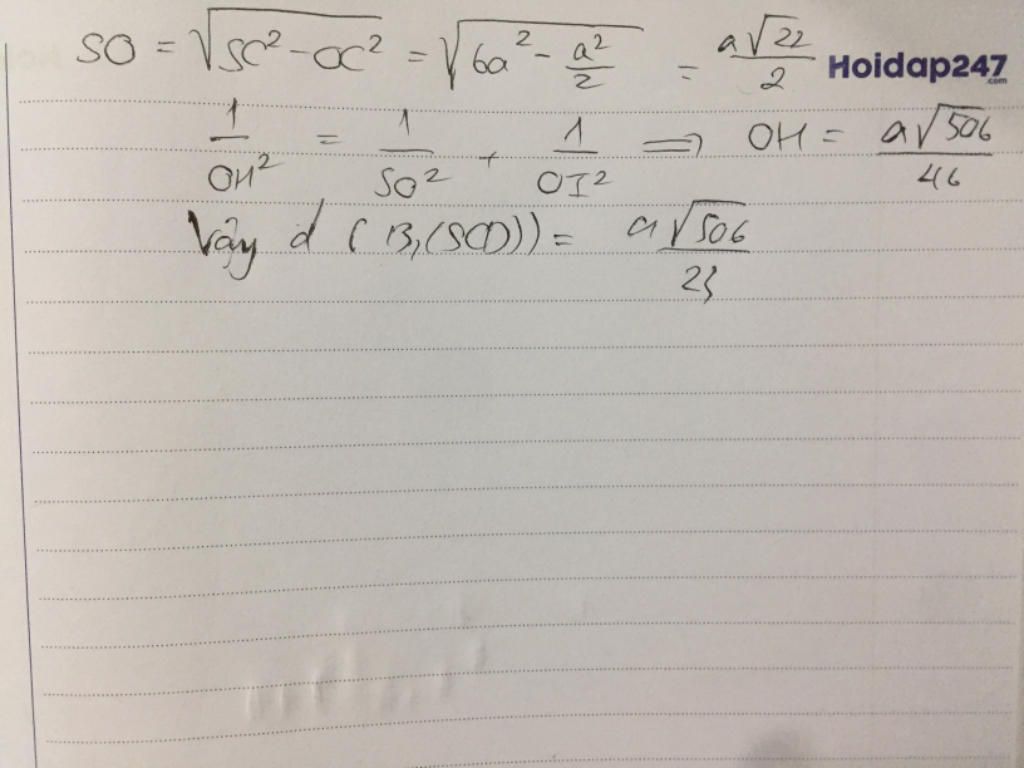 SO = √(SC² - OC²) = √(6a² - a²/2) = a√22/2
Hoidap247
.com
1/OH² = 1/SO² + 1/OI² ⟹ OH = a√506/46
Vậy d (B,(SCD)) = a√506/23